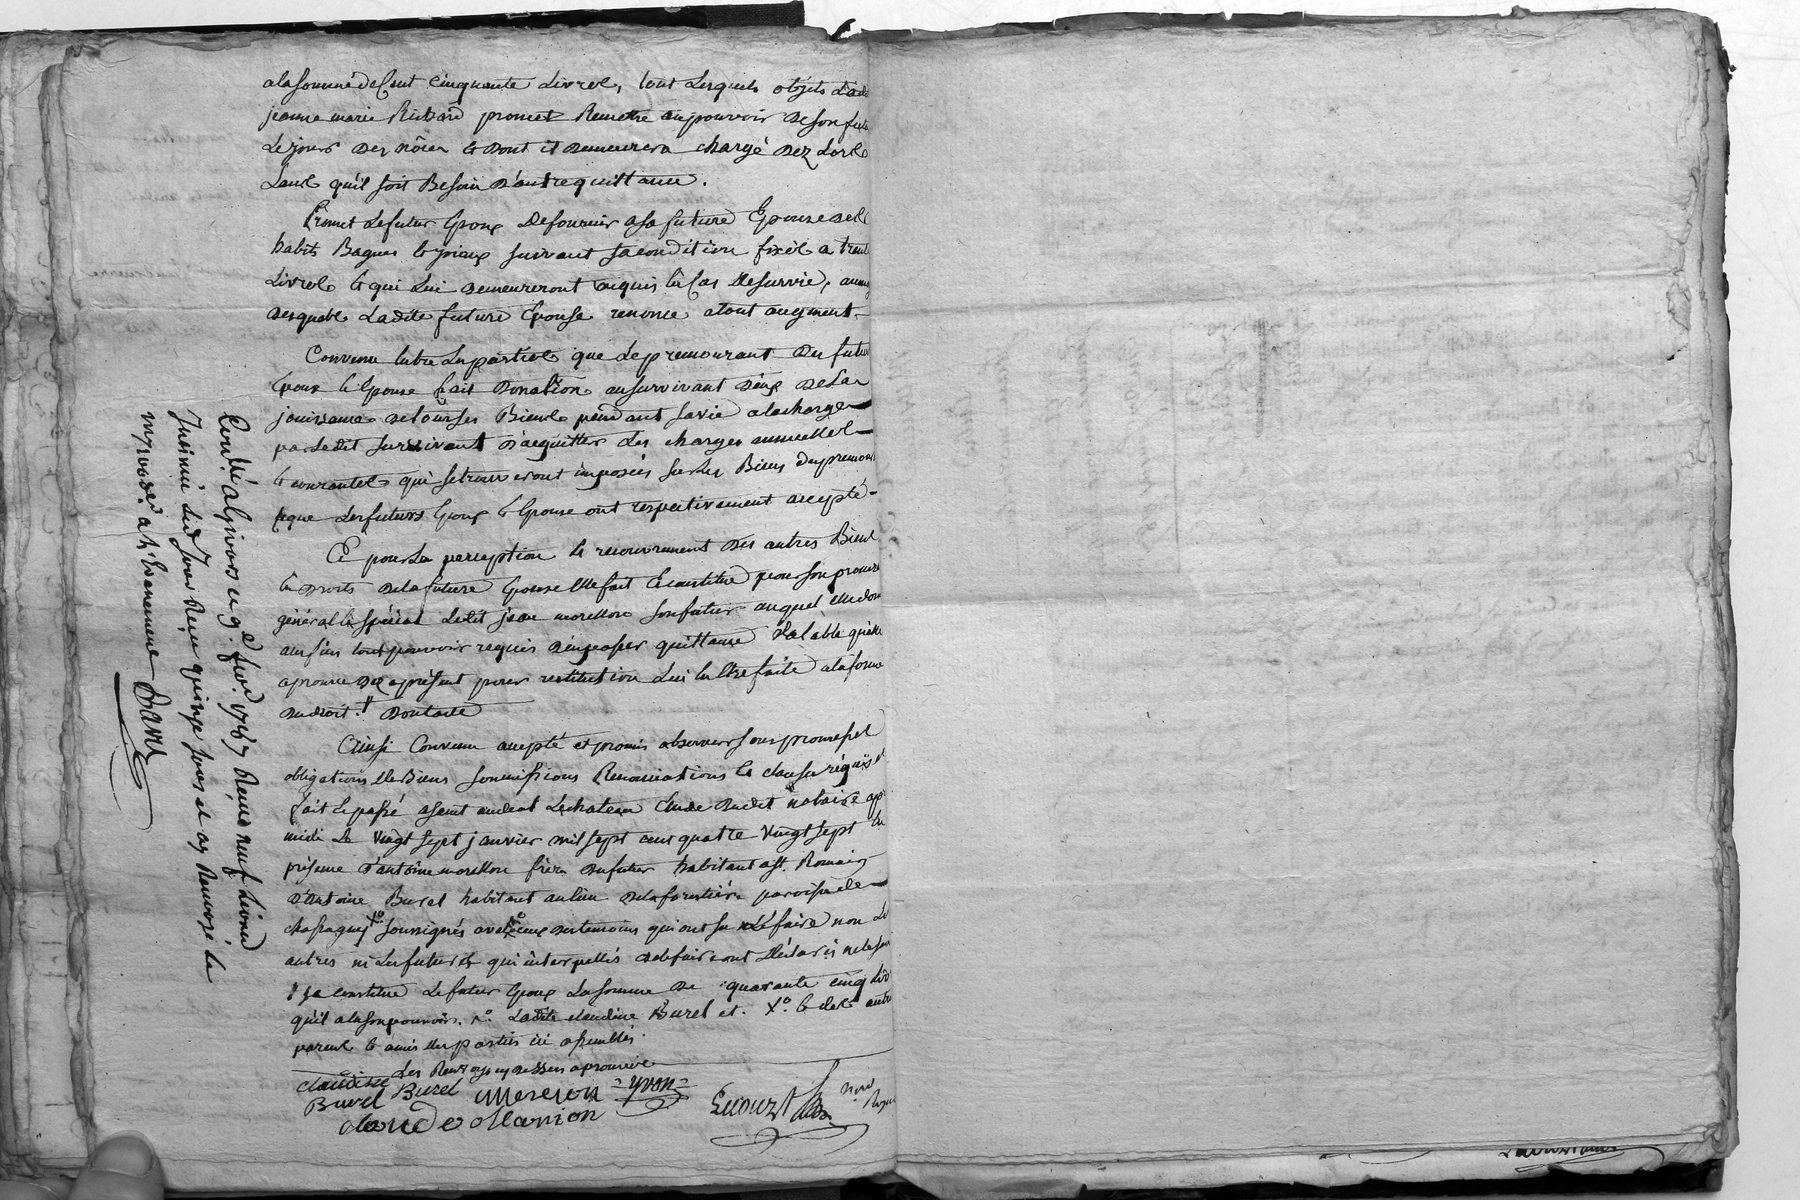 alasomme de Cent cinquante Livres, tout Lesquels objets Lad
jeanne marie Richard promet Remettre aupouvoir deson futu
Lejour des nôces et dont il demeurera chargé dez Lors
Sans quil soit Besoin d'autre quittance.
Promet Lefutur Epoux defournir asa future Epouse des
habits Bagues et joieaux suivant sacondition fixés a trente
Livres et qui Lui demeureront acquis En Cas desurvie, au moy
desquels Ladite future Epouse renonce atout augment.
Convenu Entre Les parties que Le premourant des futurs
Epoux et Epouse fait donation ausurvivant d'eux de La
jouissance detous ses Biens pendant savie alacharge
par Ledit survivant d'acquitter Les charges annuelles
et courantes qui setrouveront imposées sur Les Biens du premour
ceque Lesfuturs Epoux et Epouse ont respectivement accepté
Et pour La perception et recouvrement des autres Biens
et droits delafuture Epouse Elle fait Et constitue pour son procureur
général et spécial Ledit jean morellon son futur auquel Elle donne
aux fins tout pouvoir requis d'en passer quittance valable quelle
aprouve dez aprésent pour restitution Lui En Etre faite alaforme
du droit. † dont acte
Ainsi Convenu accepté et promis observer sous promesses
obligations de Biens soumissions Renonciations et clauses requises
fait et passé a saint andeol Lechateau Etude dudit notaire après
midi Le vingt sept janvier mil sept cent quatre vingt sept En
présence d'antoine morellon frère dufutur habitant a st. Romain
d'antoine Burel habitant aulieu de laforestière paroisse de
chassagny soussignés avec ceux des temoins qui ont su Le faire non Les
autres ni Lesfuturs qui interpellés de le faire ont déclaré ne le savoir
† se constitue Lefutur Epoux La somme de quarante cinq Livres
quil a en son pouvoir. Ladite claudine Burel et. Xo. et de Les autres
parents et amis des parties ici assemblés.
Les Renvoys cy dessus aprouvés
claudine Burel
Burel
Morelon
yvon
claude Marion
Not. Royal
Con.lé a Givors ce 9.e fev.r 1787 Reçu neuf Livres
Insinué Led. jour Reçu quinze sous et ay Renvoyé Le
a L'Evenement